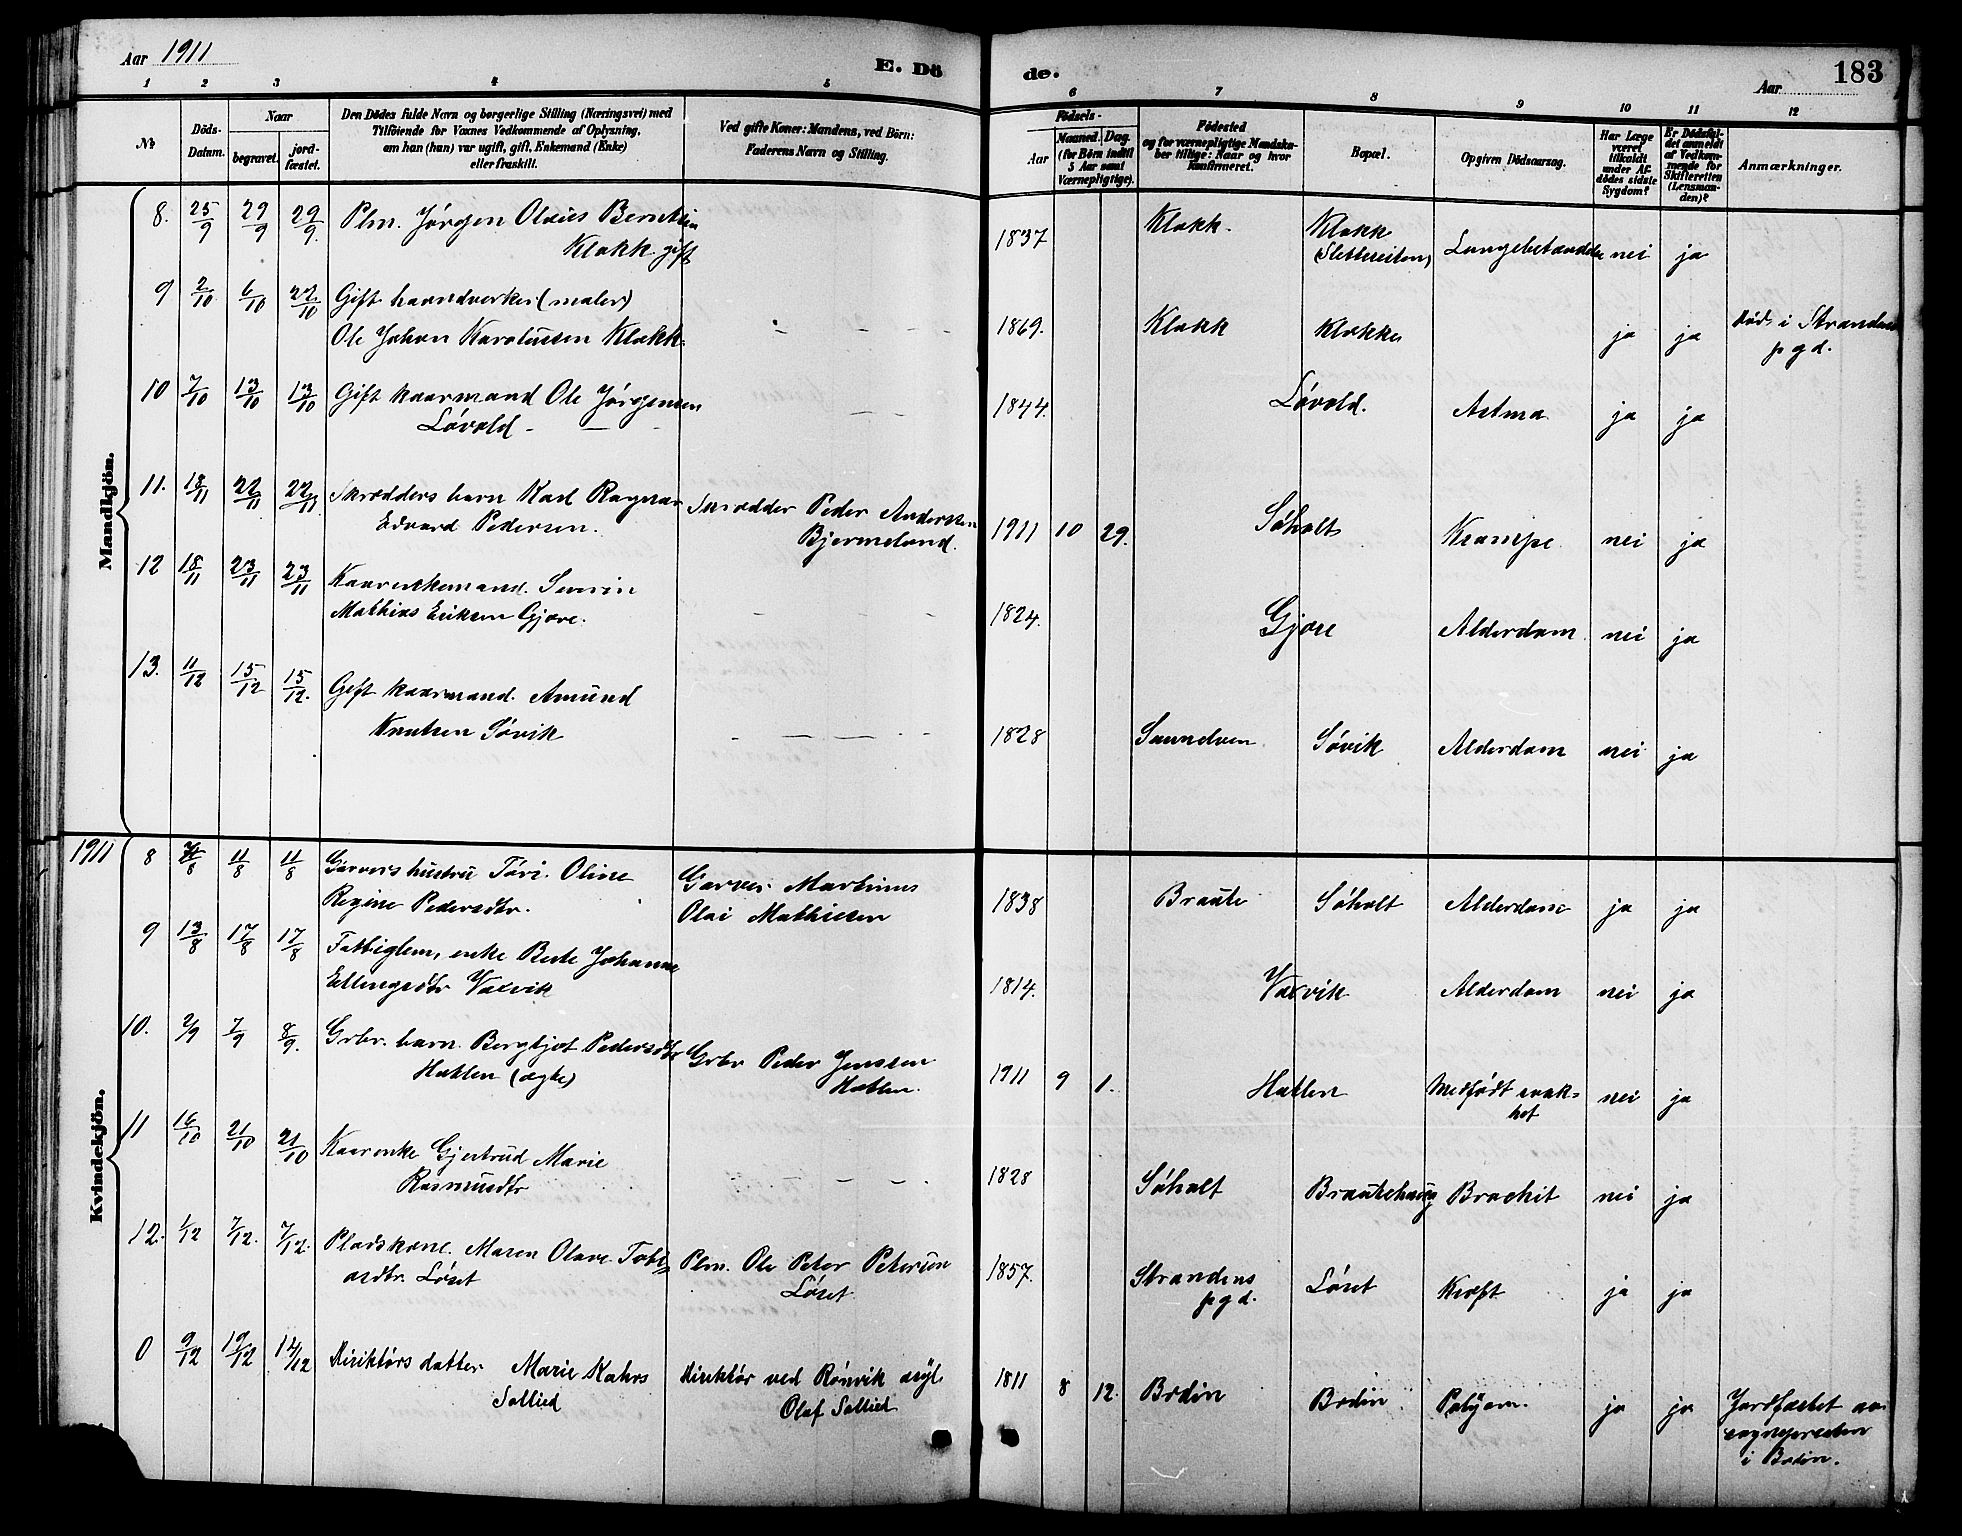 Aar 1911
E. Dö
de.
Aar
183
1 2 3 4 5 6 7 8 9 10 11 12
№
Döds-
Datum.
Naar
begravet.
jord-
fæstet.
Den Dödes fulde Navn og borgerlige Stilling (Næringsvei) med
Tilföiende for Voxnes Vedkommende af Oplysning,
om han (hun) var ugift, gift, Enkemand (Enke)
eller fraskilt.
Ved gifte Koner: Mandens, ved Börn:
Faderens Navn og Stilling.
Födsels-
Aar
Maaned. Dag.
(for Börn indtil
5 Aar samt
Værnepligtige).
Födested
og for værnepligtige Mandska-
ber tillige: Naar og hvor
konfirmeret.
Bopæl.
Opgiven Dödsaarsag.
Har Læge
været
tilkaldt
under Af-
dödes sidste
Sygdom?
Er Dödsfal-
det anmeldt
af Vedkom-
mende for
Skifteretten
(Lensman-
den)?
Anmærkninger.
Mandkjön.
8. 25/9 29/9 29/9. Plm. Jørgen Olaus Berntsen
Klokk gift
1837 Klokk. Klokk
(Slettereiten) Lungebetændelse nei ja
9 2/10 6/10 22/10 Gift haandverker (maler)
Ole Johan Karolussen Klokk.
1869. Klokk Klokke ja ja Død i Strandens
pgd.
10 7/10 13/10 13/10 Gift kaarmand Ole Jørgensen
Løvold
1844. Løvold. Astma ja ja
11. 18/11 22/11 22/11 Skrædders barn Karl Ragnar
Edvard Pedersen.
Skrædder Peder Andersen
Bjermeland.
1911 10 29. Søholt Krampe nei ja
12 18/11 23/11 23/11 Kaarenkemand. Severin
Mathias Eriksen Gjære.
1824. Gjære Alderdom nei ja
13. 11/12 15/12 15/12. Gift kaarmand. Amund
Knutsen Søvik
1828 Søvik Alderdom nei ja
1911
Kvindekjön.
8 11/8 11/8 Garvers hustru Olive
Regine Pedersdtr.
Garver Martinus
Olai Mathiesen
1838 Braute Søholt Alderdom ja ja
9 13/8 17/8 17/8 Fattiglem, enke Berte Johanne
Ellingsdtr Vaxvik
1814. Vaxvik Alderdom nei ja
10. 2/9 7/9 8/9. Grbr. barn. Bergljot Pedersdtr
Hatlen (ægte)
Grbr Peder Jenssen
Hatlen.
1911 9 1. Hatlen Medfødt svak-
het nei ja
11 16/10 21/10 21/10 Kaarenke Gjertrud Marie
Rasmusdtr
1828 Søholt Brautehaug Brochit nei ja
12. 1/12 7/12. 7/12. Pladskone. Maren Olave Tobi-
asdtr. Løset
Plm. Ole Peter Petersen
Løset
1857. Strandens
pgd. Løset Kræft ja ja
0 9/12 19/12 14/12 Direktørs datter Marie Kahrs
Sollied
Direktør ved Rønvik asyl
Olaf Sollied
1811 8 12. Bodin Bodin ja ja Jordfæstet av
sognepresten
i Bodin.